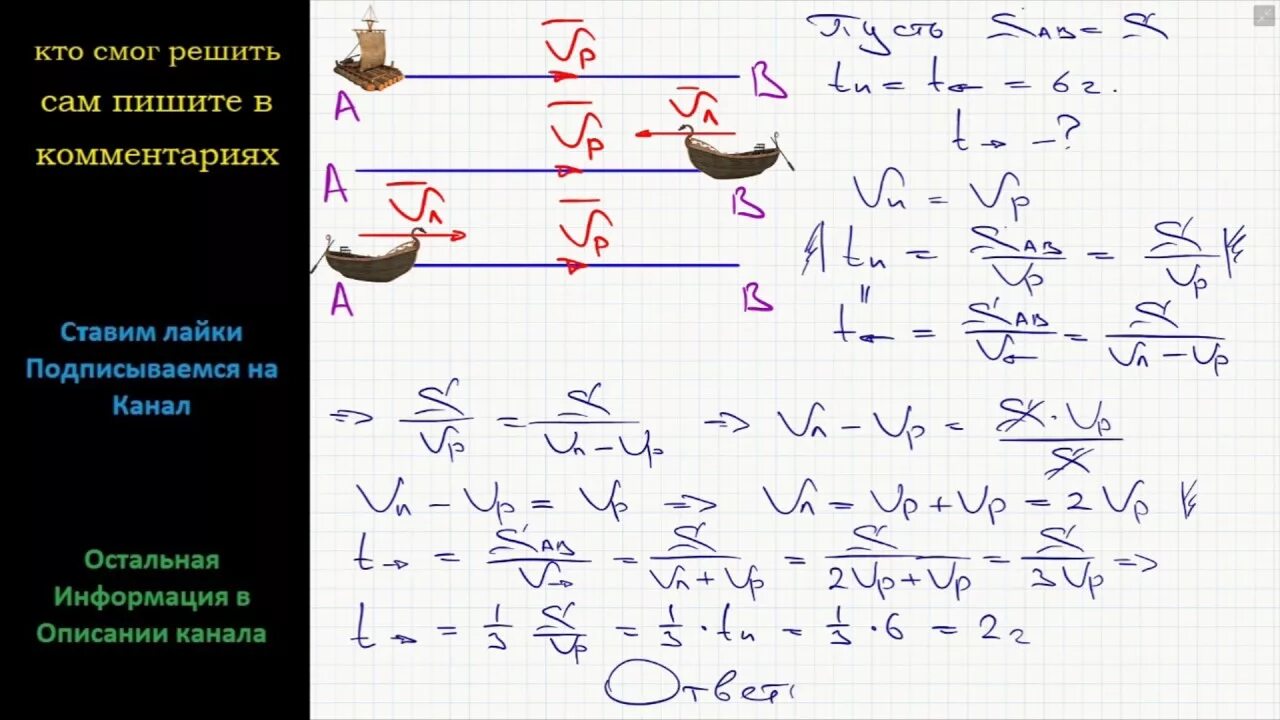 кто смог решить
сам пишите в
комментариях
Ставим лайки
Подписываемся на
Канал
Остальная
Информация в
Описании канала
Vр
A B
Vр Vл
A B
Vл Vр
A B
Пусть S_AB = S
tп = t← = 6ч.
t→ – ?
Vп = Vр
tп = S_AB/Vр = S/Vр
"
t← = S_AB/V← = S/(Vл – Vр)
=> S/Vр = S/(Vл – Vр) => Vл – Vр = S·Vр/S
Vл – Vр = Vр => Vл = Vр + Vр = 2Vр
t→ = S_AB/V→ = S/(Vл + Vр) = S/(2Vр + Vр) = S/(3Vр) =>
t→ = 1/3 S/Vр = 1/3 · tп = 1/3 · 6 = 2ч
Ответ: